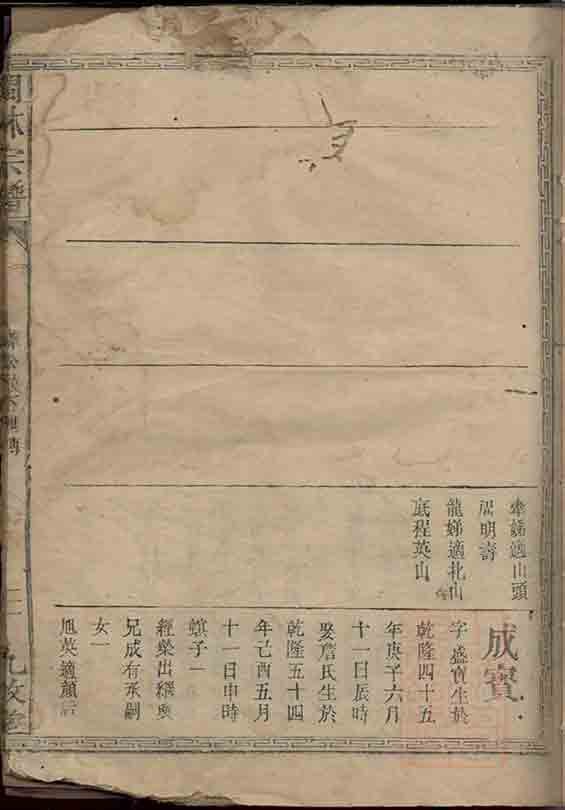 適山頭
周明壽
龍娣適北山
底程英山
成寳
字盛寳生於
乾隆四十五
年庚子六月
十一日辰時
娶詹氏生於
乾隆五十四
年己酉五月
十一日申時
子一
經榮出繼與
兄成有承嗣
女一
旭英適
林宗譜